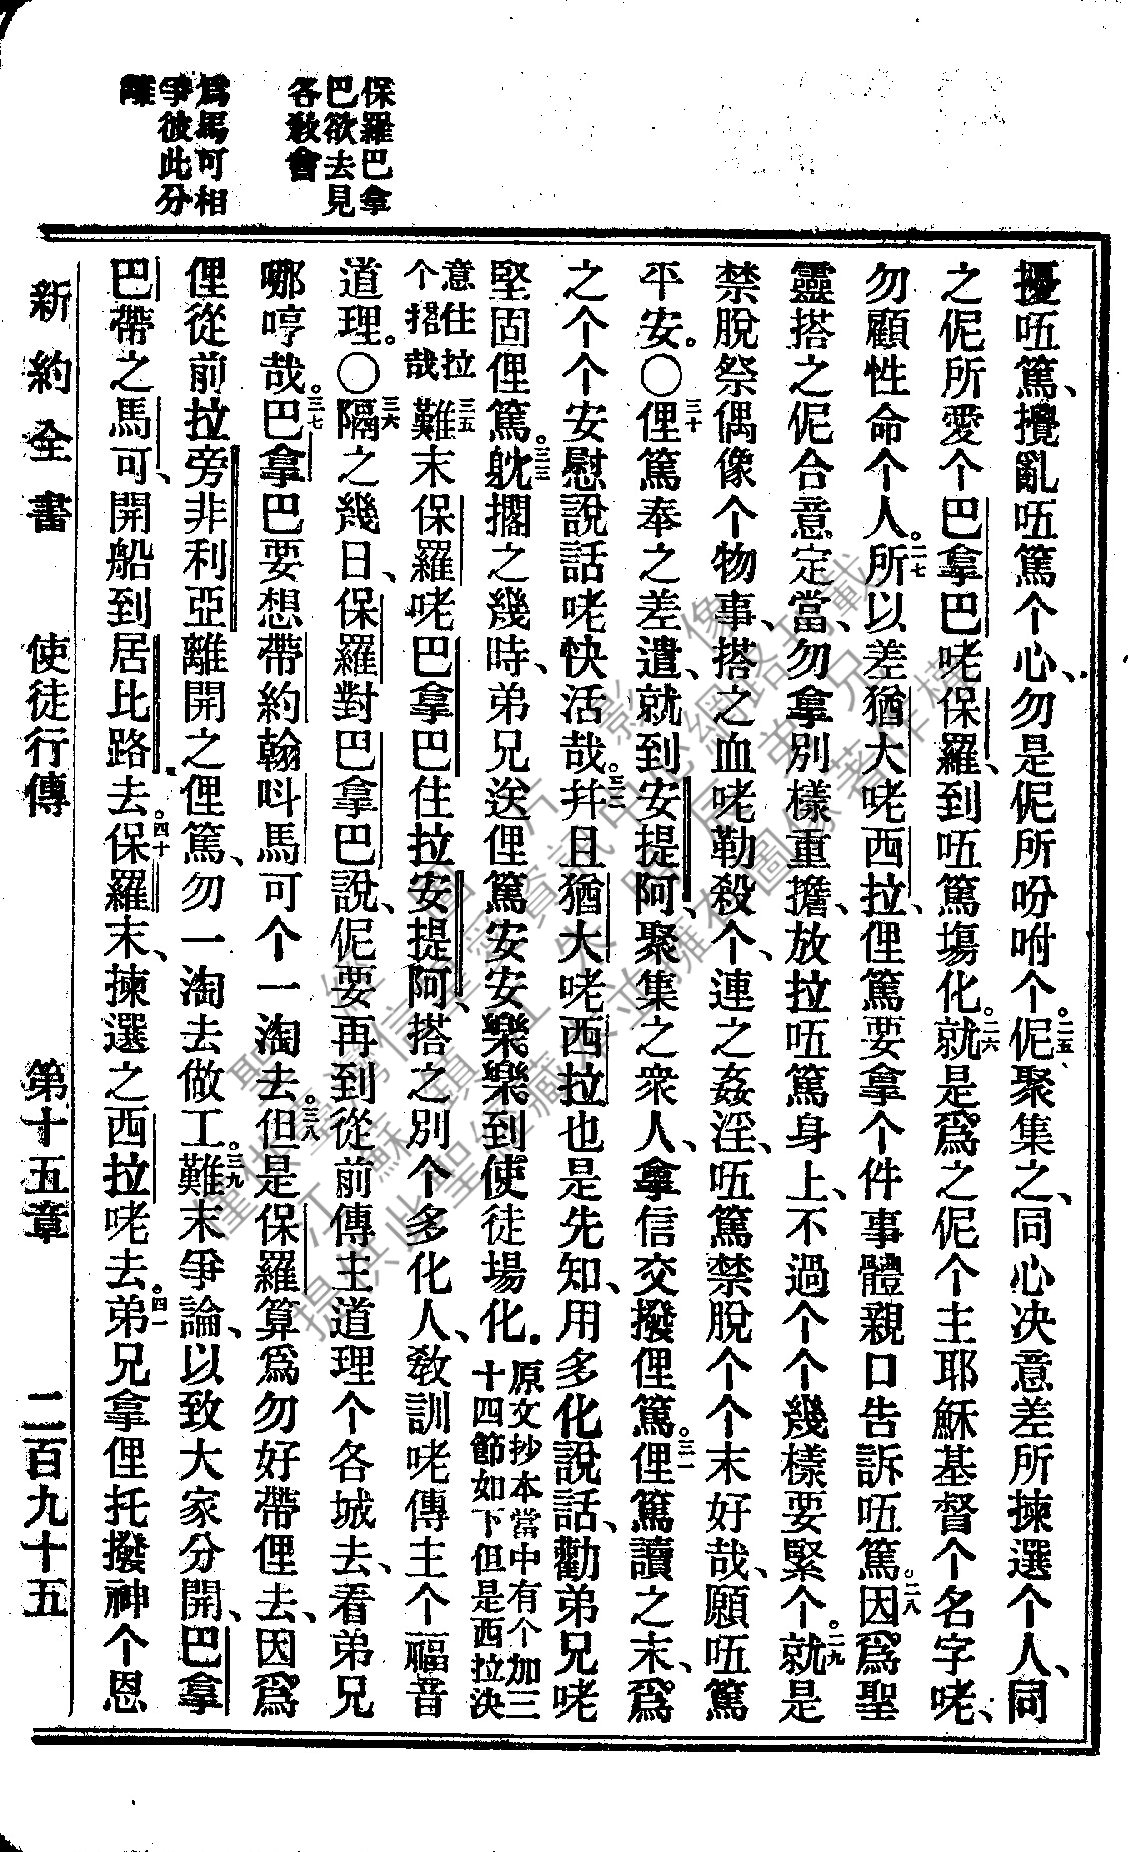 保羅巴拿
巴欲去見
各敎會
爲馬可相
爭彼此分
離
擾㕶篤、攪亂㕶篤个心、勿是伲所吩咐个。二五伲聚集之、同心决意差所揀選个人、同
之伲所愛个巴拿巴咾保羅、到㕶篤塲化。二六就是爲之伲个主耶穌基督个名字咾、
勿顧性命个人。二七所以差猶大咾西拉、俚篤要拿个件事體親口告訴㕶篤。二八因爲聖
靈搭之伲合意定當、勿拿別樣重擔、放拉㕶篤身上、不過个个幾樣要緊个。二九就是
禁脫祭偶像个物事、搭之血咾勒殺个、連之姦淫、㕶篤禁脫个个末好哉、願㕶篤
平安。〇三十俚篤奉之差遣、就到安提阿、聚集之衆人、拿信交撥俚篤。三一俚篤讀之末、爲
之个个安慰說話咾快活哉。三二幷且猶大咾西拉也是先知、用多化說話、勸弟兄咾
堅固俚篤。三三躭擱之幾時、弟兄送俚篤安安樂樂到使徒塲化。原文抄本當中有个加三十四節如下但是西拉決
意住拉个搭哉三五難末保羅咾巴拿巴住拉安提阿、搭之別个多化人、敎訓咾傳主个福音
道理。〇三六隔之幾日、保羅對巴拿巴說、伲要再到從前傳主道理个各城去、看弟兄
哪哼哉。三七巴拿巴要想帶約翰呌馬可个一淘去。三八但是保羅算爲勿好帶俚去、因爲
俚從前拉旁非利亞離開之俚篤、勿一淘去做工。三九難末爭論、以致大家分開、巴拿
巴帶之馬可、開船到居比路去。四十保羅末、揀選之西拉咾去。四一弟兄拿俚托撥神个恩
新約全書　使徒行傳　第十五章　二百九十五